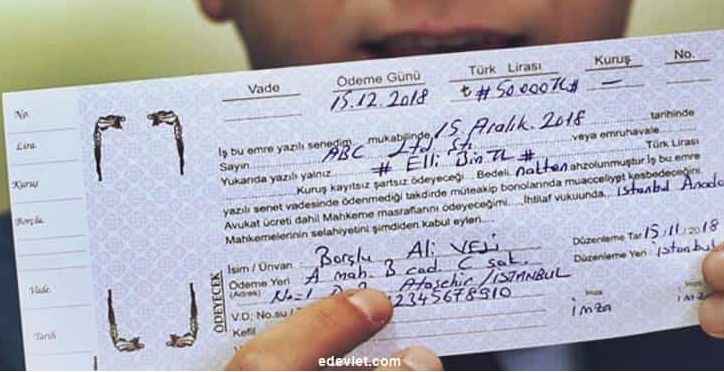 No.
Lira
Kuruş
Borçlu
Vade
Tarih
Vade
Ödeme Günü
15.12.2018
Türk Lirası
₺ #50.000TL#
Kuruş
—
No.
İş bu emre yazılı senedim mukabilinde, 15 Aralık 2018 tarihinde
Sayın ABC Ltd Şti veya emruhavale
Yukarıda yazılı yalnız # Elli Bin TL # Türk Lirası
Kuruş kayıtsız şartsız ödeyeceği Bedeli nakten ahzolunmuştur. İş bu emre
yazılı senet vadesinde ödenmediği takdirde müteakip bonolarında muacceliyet kesbedeceğini,
Avukat ücreti dahil Mahkeme masraflarını ödeyeceğimi İhtilaf vukuunda, İstanbul
Mahkemelerinin selahiyetini şimdiden kabul eyleri
ÖDEYECEK
İsim / Ünvan : Borçlu Ali VELİ
Ödeme Yeri : A mah. B cad. C sok.
(Adres) No=1 Ataşehir / İSTANBUL
V.D. No.su 12345678910
Kefil
Düzenleme Tar 15/11/2018
Düzenleme Yeri : istanbul
İmza
imza
edevlet.com